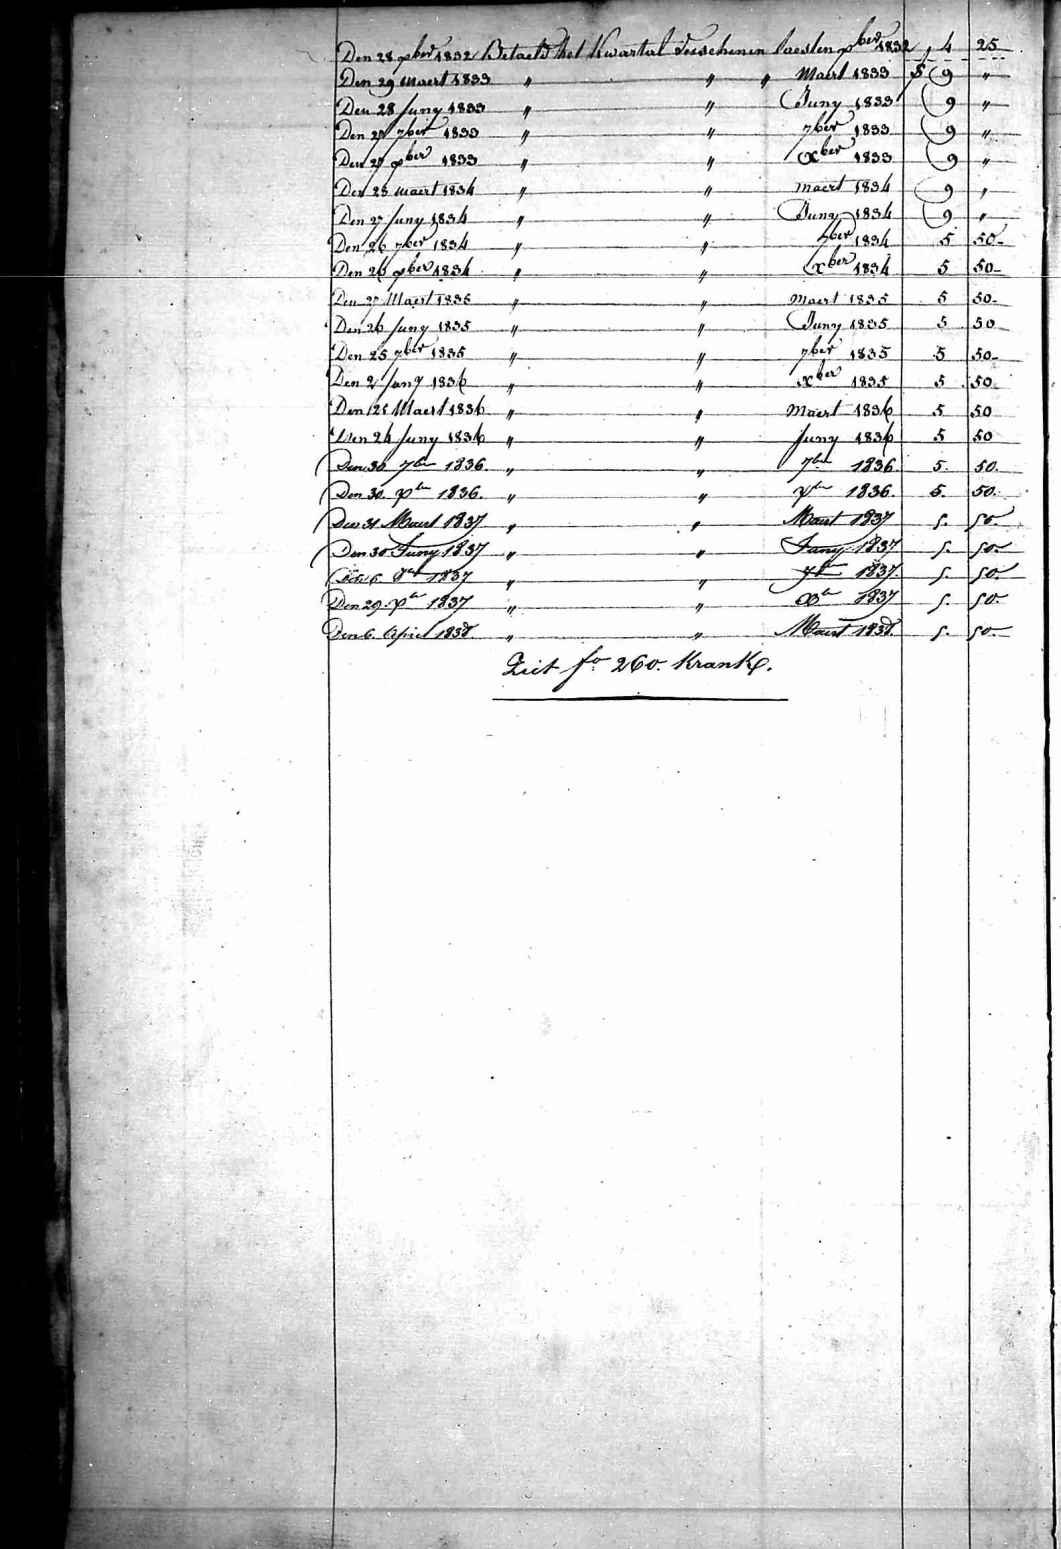 Den 28 xber 1832 Betaeld het Kwartal verschenen laesten xber 1832 , 4 25
Den 29 Maert 1833 " " " Maert 1833 5 9 "
Den 28 Juny 1833 " " Juny 1833 9 "
Den 27 7ber 1833 " " 7ber 1833 9 "
Den 27 xber 1833 " " xber 1833 9 "
Den 28 maert 1834 " " maert 1834 9 "
Den 27 Juny 1834 " " Juny 1834 9 "
Den 26 7ber 1834 " " 7ber 1834 5 50
Den 26 xber 1834 " " xber 1834 5 50
Den 27 Maert 1835 " " Maert 1835 5 50
Den 26 Juny 1835 " " Juny 1835 5 50
Den 25 7ber 1835 " " 7ber 1835 5 50
Den 2 Jany 1836 " " xber 1835 5 50
Den 25 Maert 1836 " " Maert 1836 5 50
Den 24 Juny 1836 " " Juny 1836 5 50
Den 30 7ber 1836. " " 7ber 1836. 5. 50.
Den 30. xber 1836. " " xber 1836. 5. 50.
Den 31 Maert 1837 " " Maert 1837 5. 50.
Den 30 Juny 1837 " " Juny 1837 5. 50.
Den 6. 8ber 1837 " " 7ber 1837. 5. 50.
Den 29. xber 1837 " " xber 1837 5. 50.
Den 6. April 1838 " " Maert 1838. 5. 50.
Ziet fo 260. Krank.